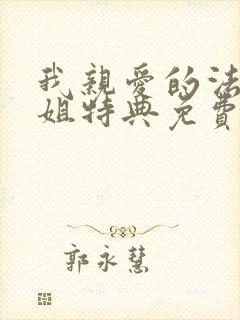 我親愛的法
姐特典免費
郭永慧